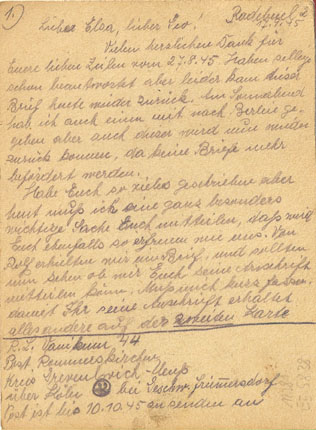 1.)
Radebeul 2
45
Liebe Elsa, lieber Leo!
Vielen herzlichen Dank für
Euere lieben Zeilen vom 27.8.45 Haben selbe
schon beantwortet aber leider kam dieser
Brief heute wieder zurück. Am Sonnabend
hab ich auch einen mit nach Berlin ge-
geben aber auch dieser wird nun wieder
zurück kommen, da keine Briefe mehr
befördert werden.
Habe Euch so vieles geschrieben aber
heut muß ich eine ganz besonders
wichtige Sache Euch mitteilen, daß wird
Euch ebenfalls so erfreuen wie uns. Von
erhielten wir einen Brief, und sollten
nun sehen ob wir Euch seine Anschrift
mitteilen können. Muß mich kurz fassen
damit Ihr seine Anschrift erhaltet
alles andere auf der zweiten Karte
44
Post Rommerskirchen
Kreis Grevenbroich-Neuß
über Köln bei Geschw.
Post ist bis 10.10.45 zu senden an